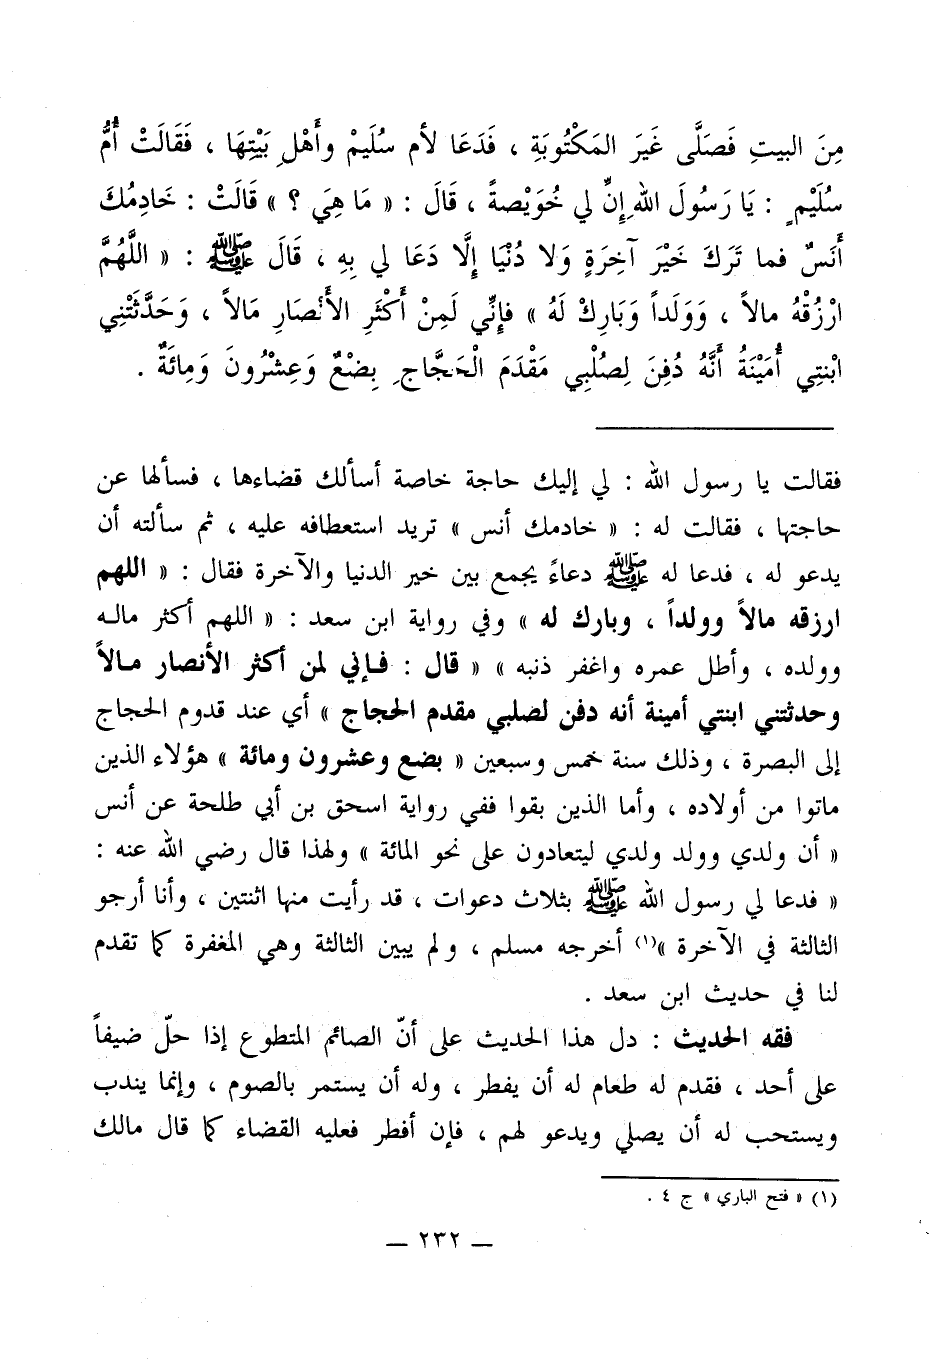 مِنَ البيتِ فَصَلَّى غَيَرَ المَكْتُوبَةِ ، فَدَعَا لأم سُلَيمْ وأَهْلِ بَيْتِهَا ، فَقَالَتْ أُمُّ
سُلَيْمٍ : يَا رَسُولَ اللهِ إِنَّ لي خُوَيْصةً ، قَالَ : « مَا هِيَ ؟ » قَالَتْ : خَادِمُكَ
أَنَسٌ فما تَرَكَ خَيْرَ آخِرَةٍ وَلا دُنْيَا إِلَّا دَعَا لي بِهِ ، قَالَ ﷺ : « اللَّهُمَّ
ارْزُقْهُ مالاً ، وَوَلَداً وَبَارِكْ لَهُ » فإنِّي لَمِنْ أَكْثَرِ الأَنْصَارِ مَالاً ، وَحَدَّثَتْنِي
ابْنتِي أُمَيْنَةُ أَنَّهُ دُفِنَ لِصُلْبِي مَقْدَمَ الْحَجَّاجِ بِضْعٌ وَعِشْرُونَ وَمِائَةٌ .
فقالت يا رسول الله : لي إليك حاجة خاصة أسألك قضاءها ، فسألها عن
حاجتها ، فقالت له : « خادمك أنس » تريد استعطافه عليه ، ثم سألته أن
يدعو له ، فدعا له ﷺ دعاءً يجمع بين خير الدنيا والآخرة فقال : « اللهم
ارزقه مالاً وولداً ، وبارك له » وفي رواية ابن سعد : « اللهم أكثر مالـه
وولده ، وأطل عمره واغفر ذنبه » « قال : فـإني لمن أكثر الأنصار مـالاً
وحدثتني ابنتي أمينة أنه دفن لصلبي مقدم الحجاج » أي عند قدوم الحجاج
إلى البصرة ، وذلك سنة خمس وسبعين « بضع وعشرون ومائة » هؤلاء الذين
ماتوا من أولاده ، وأما الذين بقوا ففي رواية اسحق بن أبي طلحة عن أنس
« أن ولدي وولد ولدي ليتعادون على نحو المائة » ولهذا قال رضي الله عنه :
« فدعا لي رسول الله ﷺ بثلاث دعوات ، قد رأيت منها اثنتين ، وأنا أرجو
الثالثة في الآخرة »(١) أخرجه مسلم ، ولم يبين الثالثة وهي المغفرة كما تقدم
لنا في حديث ابن سعد .
فقه الحديث : دل هذا الحديث على أنّ الصائم المتطوع إذا حلّ ضيفاً
على أحد ، فقدم له طعام له أن يفطر ، وله أن يستمر بالصوم ، وإنما يندب
ويستحب له أن يصلي ويدعو لهم ، فإن أفطر فعليه القضاء كما قال مالك
(١) « فتح الباري » ج ٤ .
— ٢٣٢ —